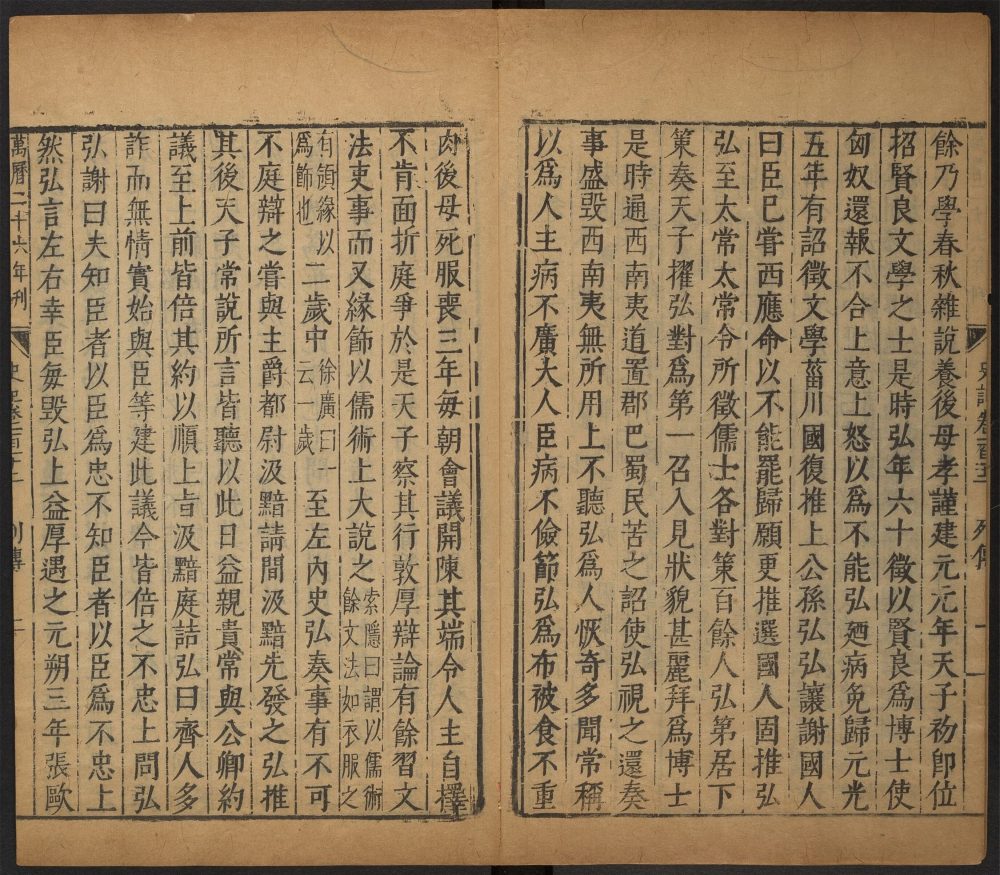 餘乃學春秋雜說養後母孝謹建元元年天子初卽位
招賢良文學之士是時弘年六十徵以賢良爲博士使
匈奴還報不合上意上怒以爲不能弘廼病免歸元光
五年有詔徵文學菑川國復推上公孫弘弘讓謝國人
曰臣已嘗西應命以不能罷歸願更推選國人固推弘
弘至太常太常令所徵儒士各對策百餘人弘第居下
策奏天子擢弘對爲第一召入見狀貌甚麗拜爲博士
是時通西南夷道置郡巴蜀民苦之詔使弘視之還奏
事盛毀西南夷無所用上不聽弘爲人恢奇多聞常稱
以爲人主病不廣大人臣病不儉節弘爲布被食不重
史記卷百十二 列傳 二
肉後母死服喪三年每朝會議開陳其端令人主自擇
不肯面折庭爭於是天子察其行敦厚辯論有餘習文
法吏事而又緣節以儒術上大說之 索隱曰謂以儒術
餘文法如衣服之
有領緣以
爲飾也
二歲中 徐廣曰一
云一歲
至左內史弘奏事有不可
不庭辯之嘗與主爵都尉汲黯請閒汲黯先發之弘推
其後天子常說所言皆聽以此日益親貴常與公卿約
議至上前皆倍其約以順上旨汲黯庭詰弘曰齊人多
詐而無情實始與臣等建此議今皆倍之不忠上問弘
弘謝曰夫知臣者以臣爲忠不知臣者以臣爲不忠上
然弘言左右幸臣每毀弘上益厚遇之元朔三年張歐
萬曆二十六年刊